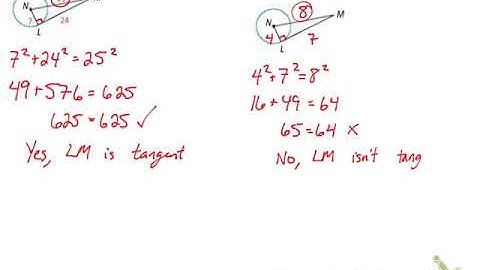 N
M
7
24
L
7²+24²=25²
49+576=625
625=625 ✓
Yes, LM is tangent
8
N
M
4
7
L
4²+7²=8²
16+49=64
65=64 x
No, LM isn't tang